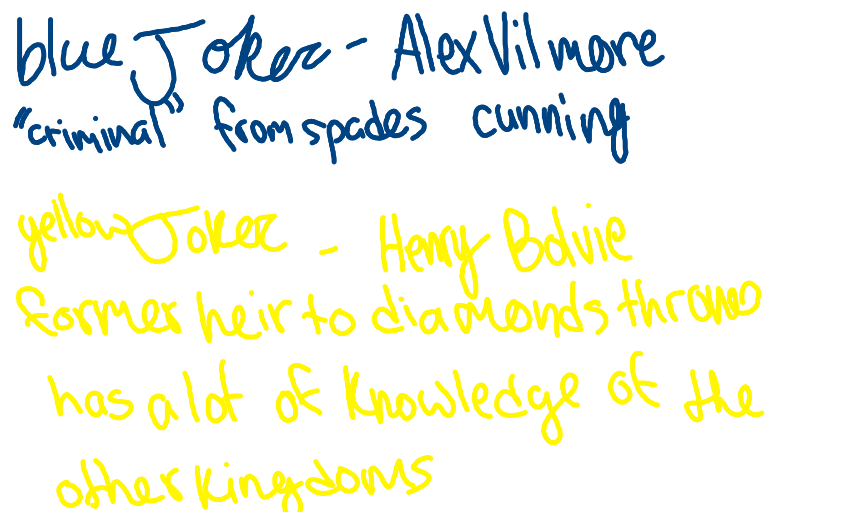 blue Joker - Alex Vilmore
"criminal" from spades cunning
yellow Joker - Henry Bolvie
former heir to diamonds throne
has a lot of knowledge of the
other kingdoms